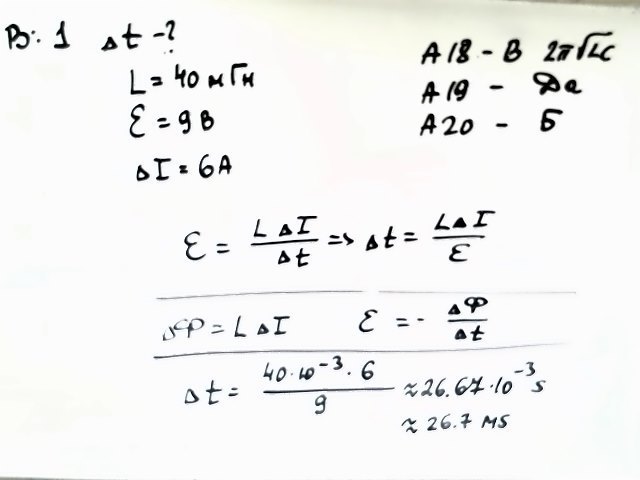 В: 1 Δt - ?
L = 40 мГн
ℰ = 9 В
ΔI = 6А
А18 - В 2π√LC
А19 - Да
А20 - Б
ℰ = LΔI/Δt => Δt = LΔI/ℰ
ΔΦ = LΔI ℰ = - ΔΦ/Δt
Δt = 40·10⁻³·6/9 ≈ 26.67·10⁻³ s
≈ 26.7 ms